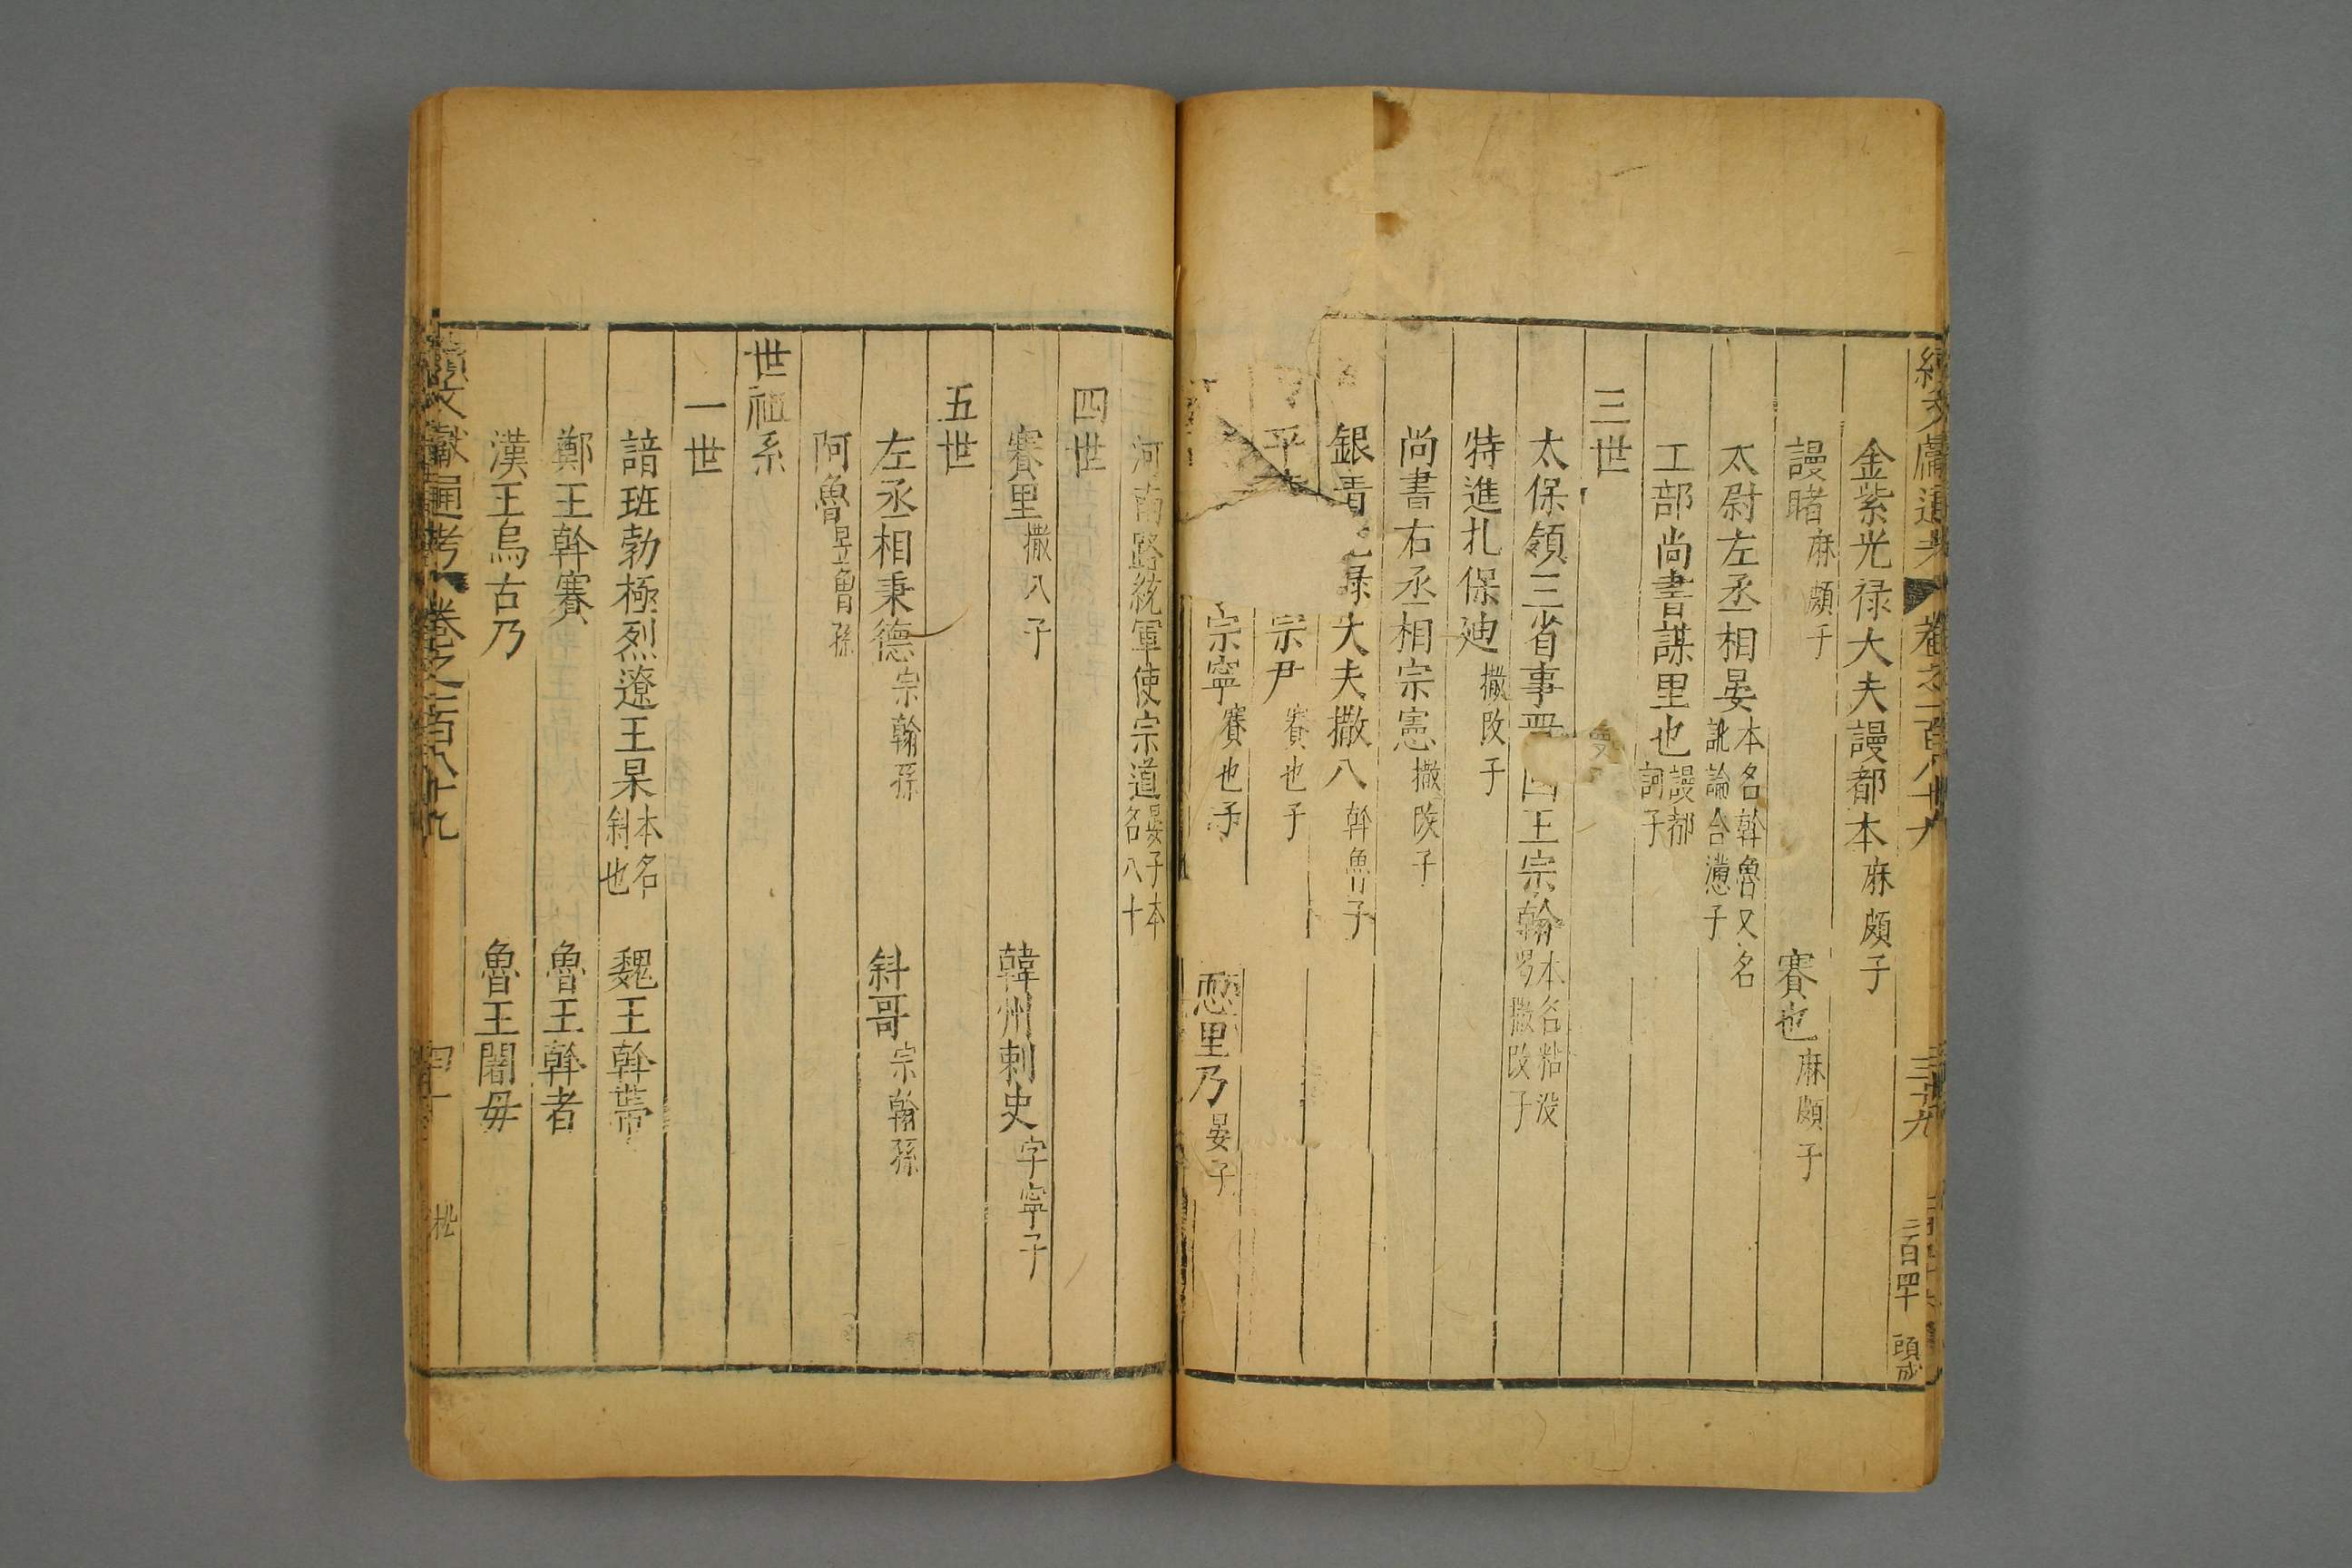 金紫光禄大夫謾都本麻頗子
謾睹麻頗子 賽也麻頗子
太尉左丞相晏本名斡魯又名訛論合懣子
工部尚書謀里也謾都訶子
三世
太保領三省事 王宗翰本名粘没曷撒改子
特進扎保廸撒改子
尚書右丞相宗憲撒改子
銀青 禄大夫撒八斡魯子
平 宗尹賽也子
宗寧賽也子 悪里乃晏子
河南路統軍使宗道晏子本名八十
四世
賽里撒八子 韓州刺史字寧子
五世
左丞相秉德宗翰孫 斜哥宗翰孫
阿魯昱魯孫
世祖系
一世
諳班勃極烈遼王杲本名斜也 魏王斡帶
鄭王斡賽 魯王斡者
漢王烏古乃 魯王闍毋
續文獻通考 卷之一百八十九 四十 松